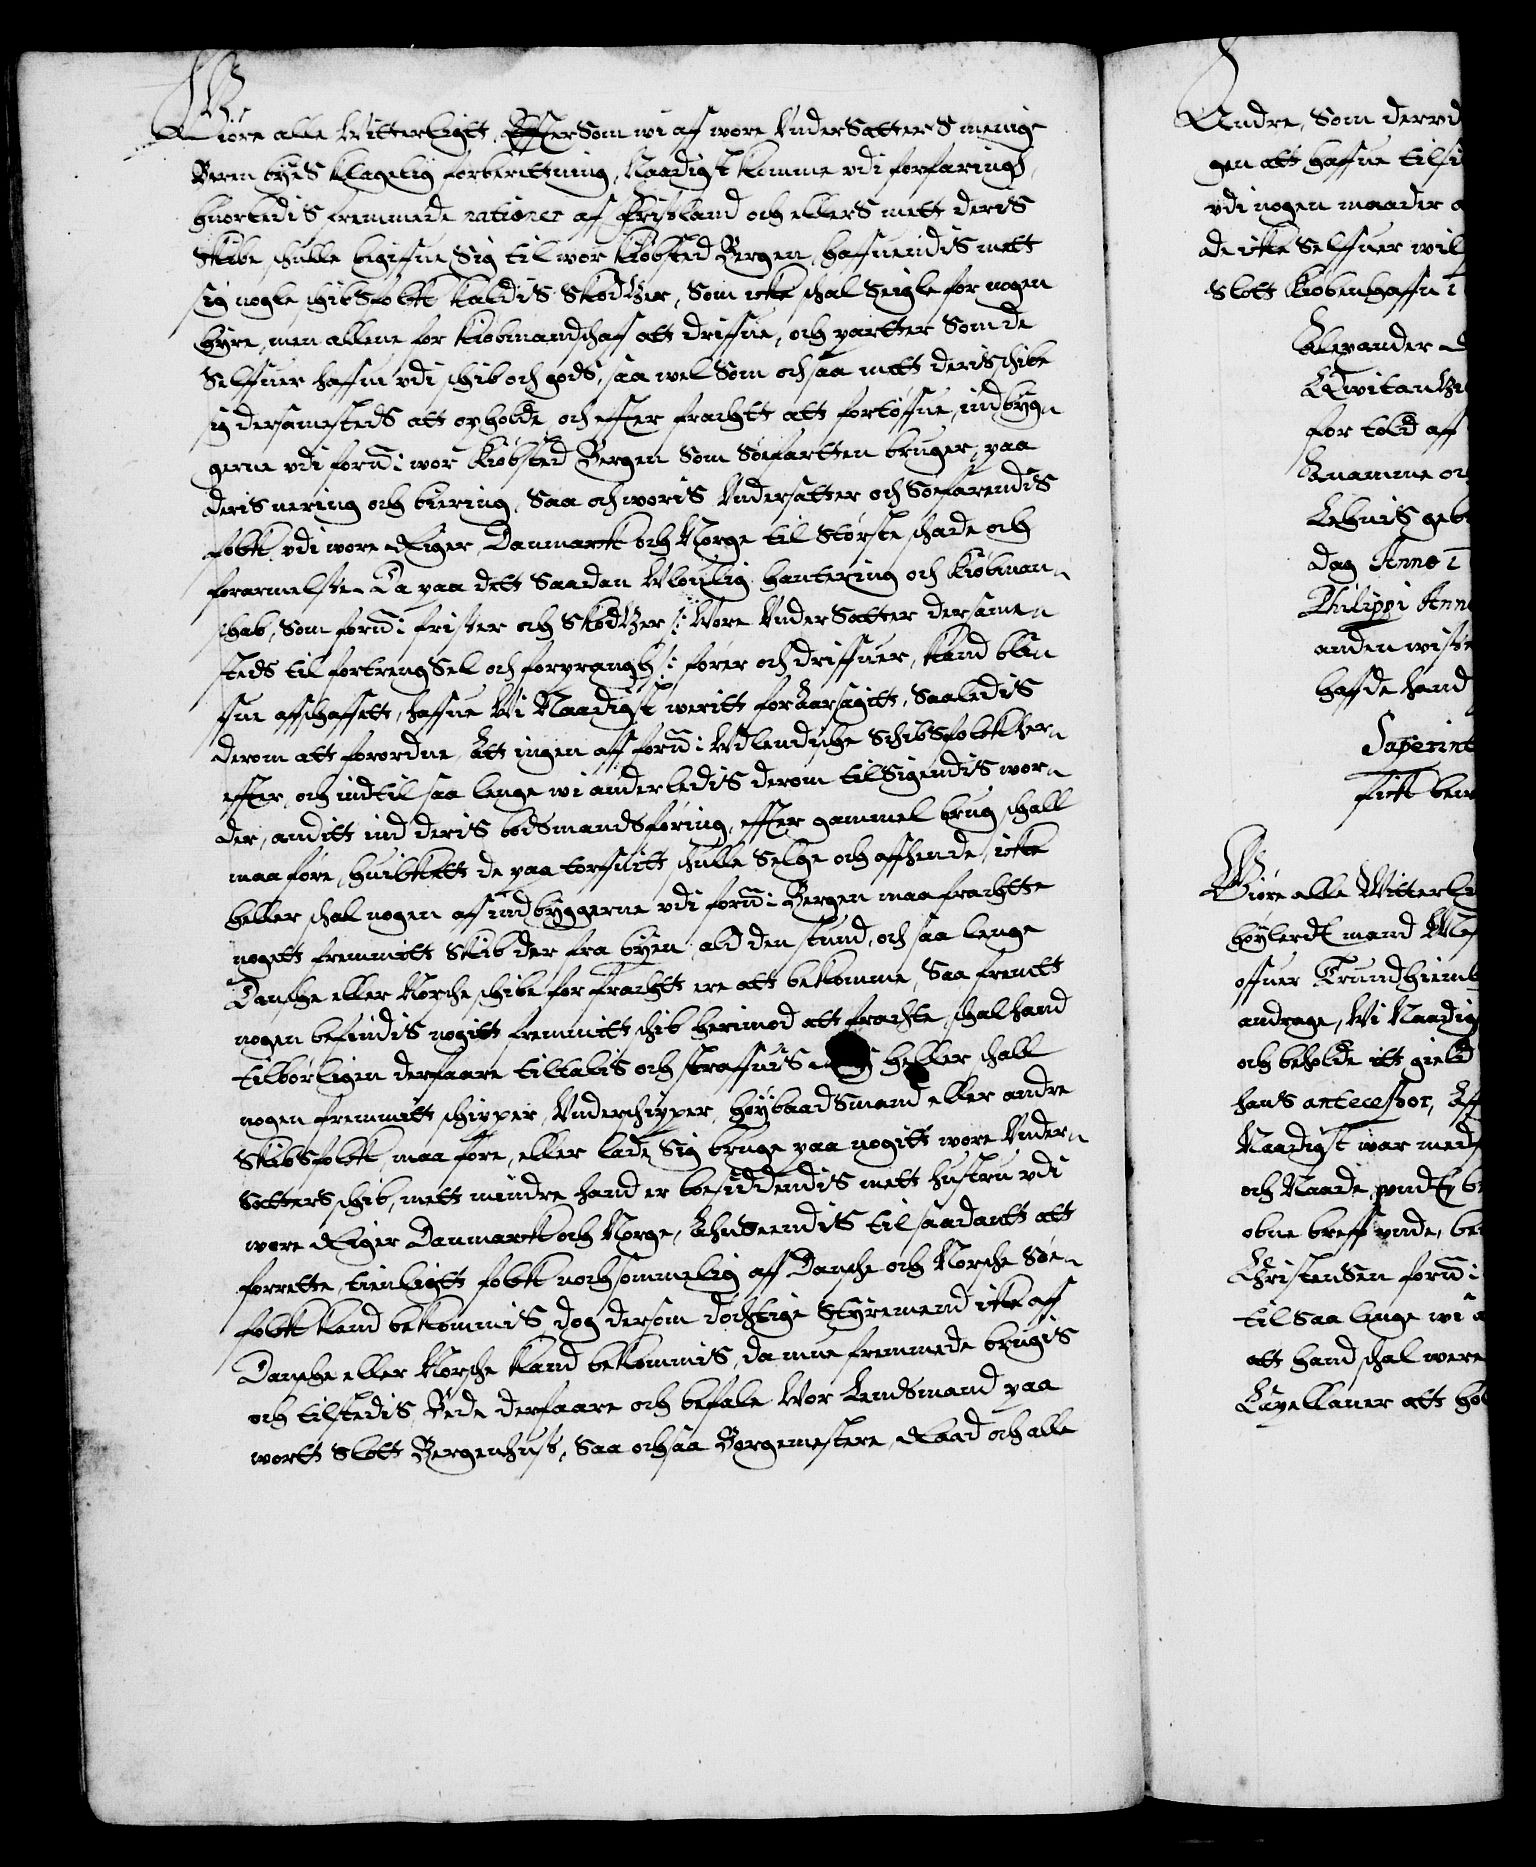 Giøre alle Witterligtt, Effter Som wi aff wore Vnder Satters menige
Bern byes klagelig forberettning, Naadigst komme vdi forfaringh,
huorledis fremmede nationer aff Friszland och ellers mett deris
Skibe schulle begiffue Sig til wor kiøbsted Bergen, haffuendis mett
sig nogle schibsfolkk kaldis Skodtzer, Som icke schal Seigle for nogen
hyre, men allene for kiøbmandschaff att driffue, och partter Som de
Selffuer haffue vdi schib och gods, saa wel Som och saa mett deris schibe
sig dersamesteds att opholde, och effter frachtt att fortøffue, indbyg-
gerne vdi fornd: wor kiøbsted Bergen Som Søefartten bruger, paa
deris nering och biering, Saa och woris Vndersatter och Søefarendis
folkk, vdi wore Riger, Danmarck och Norge til Største schade och
forarmelsze. Da paa dett Saadan Wlouelig hantering och kiøbman-
schab, Som fornd: friszer och Skodtzer /: Wore Vnder Satter dersame-
steds til fortrengSel och forprangh :/ fører och driffuer, kand bli-
ffue affschaffett, haffue Wi Naadigst weritt foraarsagitt, Saaledis
derom att forordne, Att ingen aff fornd: Wdlendische Schibsfolkk her-
effter, och indtil saa lenge wi anderledis derom tilsigendis wor-
der, anditt ind deris bodsmandsføring, effter gammel brug schall
maa føre, huilckett de paa torffuitt schulle Selge och affhende, icke
heller schal nogen aff indbyggerne vdi fornd: Bergen maa frachtte
nogett fremmitt Skib der fra byen, ald den stund, och saa lenge
Dansche eller Norsche schibe for frachtt ere att bekomme, Saa fremtt
nogen befindis nogitt fremmitt schib herimod att frachte, schal hand
tilbørligen derfaare tiltalis och straffuis heller schall
nogen fremmitt schipper, Vnderschipper, Høybaadsmand eller andre
Skibsfolkk, maa føre, eller lade Sig bruge paa nogitt wore Vnder-
Satters schib, mett mindre hand er boesiddendis mett hustru vdi
wore Riger Danmarck och Norge, Ahnseendis til saadantt att
forrette, tienligtt folkk nochsommelig aff Dansche och Norsche Søe-
folkk kand bekommis dog dersom dochtige Styremend icke aff
Dansche eller Norsche kand bekommis, da mue fremmede brugis
och tilstedis, Bede derfaare och befale Wor Lendsmand paa
wortt Slott Bergenhusz, Saa och saa Borgemestere, Raad och alle
Andre, Som derud
gen att haffue tilsi
vdi nogen maader
de icke Selffuer wil
Slott Kiøbenhaffn
Alexander
Qwitantzi
for told aff
Anamme oc
Lehnis geb
dag Anno
Philippi Ann
anden wisz
haffde hand
Saperint
fick bew
Giøre alle Witterli
høylerdt mand
offuer Trundhiem
andrage, Wi Naadig
och beholde itt gield
hans antecessor,
Naadigst war med
och Naade, vndt
obne breff vnde, be
Christensen fornd:
til Saa lenge wi
att hand schal were
Capellaner att hol